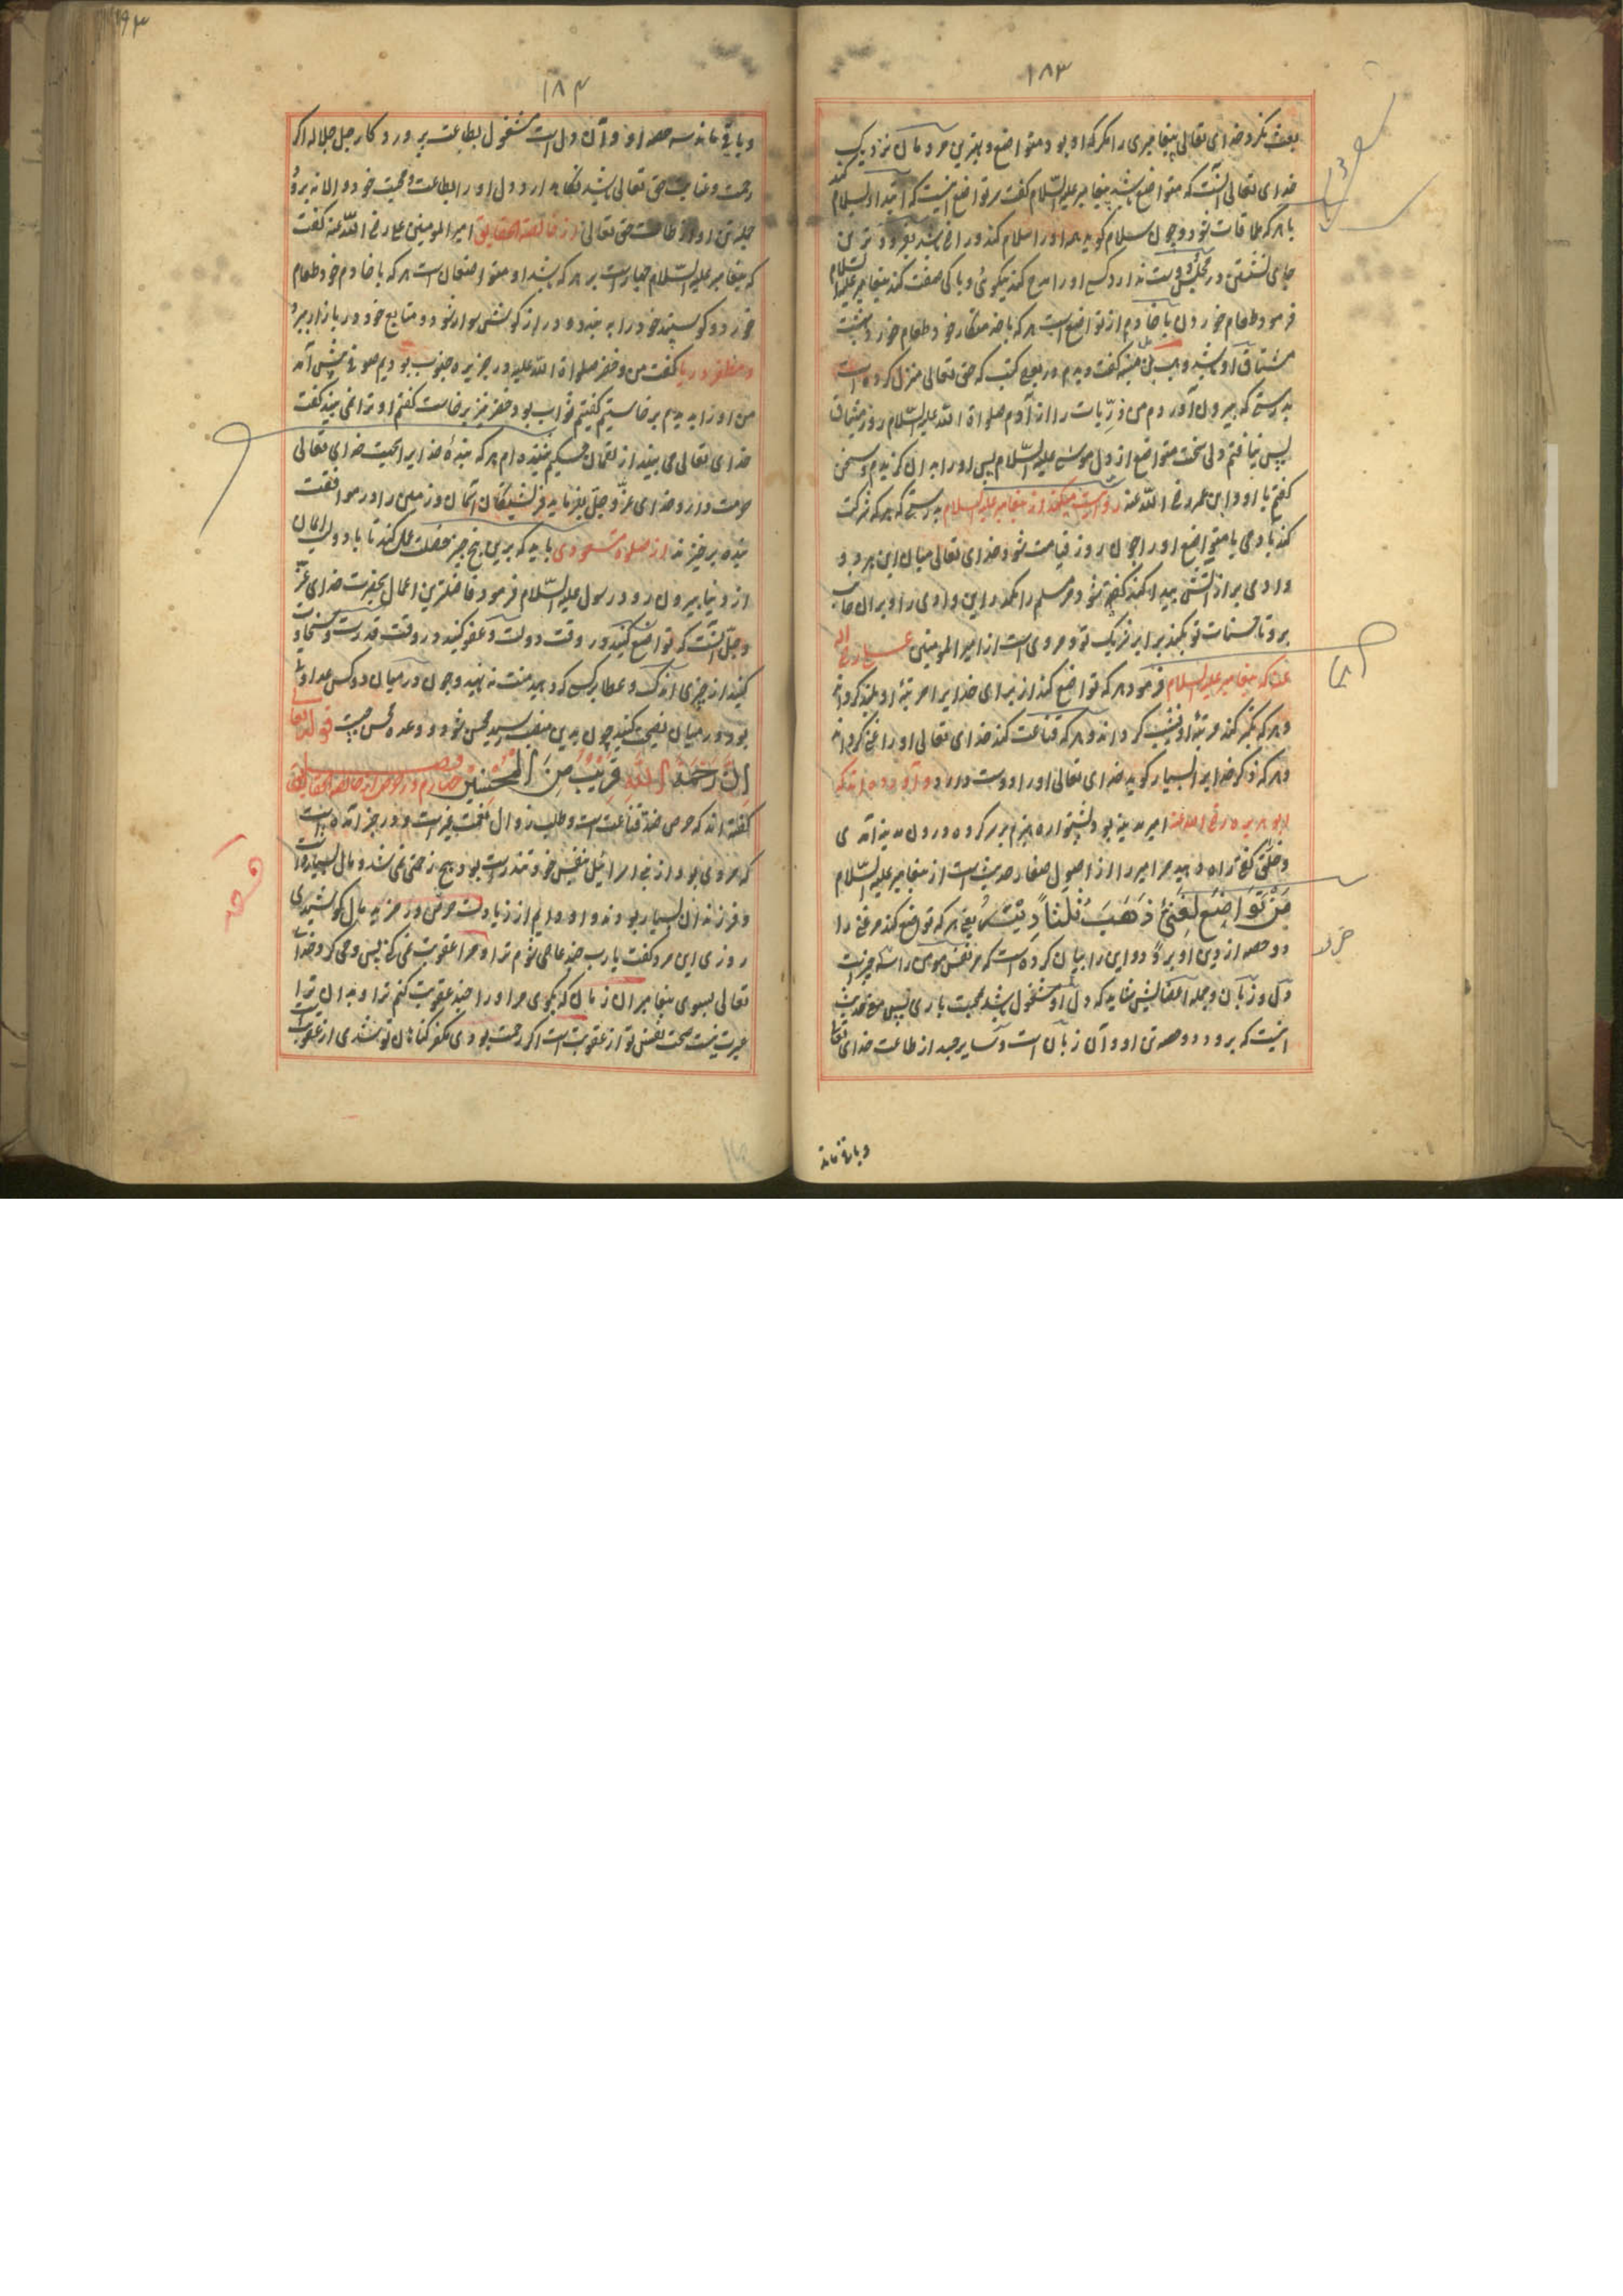 ۱۸۳
بعث نکرد خدای تعالی پیغامبری را مگر که او بود متواضع و بهترین مردمان نزدیک
خدای تعالی آنست که متواضع باشد پیغامبر علیه السلام گفت مر تواضع اینست که ابتدا سلام کند
با هر که ملاقات شود و چون سلام گوید هر او را سلام کند و راضی شود بفروترین
جای نشستن در مجلس و دوست ندارد کسی او را مدح کند نیکوئی و پاکی صفت کند پیغامبر علیه السلام
فرمود طعام خوردن با خادم از تواضع است هر که با خدمتکار خود طعام خورد بهشت
مشتاق او شود و وهب بن منبه گفت دیدم در بعضی کتب که حق تعالی منزل کرده است
بدرستی که بیرون آوردم من ذریات را از آدم صلواة الله علیه السلام روز میثاق
پس نیافتم دلی سخت متواضع از دل موسی علیه السلام پس او را بدان گزیدم و سخن
گفتم با او و ابن عمر رضی الله عنه روایت میکند از پیغامبر علیه السلام بدرستی که هر که شرکت
کند با دمی یا متواضع او را چون روز قیامت شود خدای تعالی میان این هر دو
وادی بر از آتش پیدا کند گفته شود مر مسلم را بگذر این وادی را و بر آن جانب
برو تا حسنات تو بکند برابر شریک تو و مروی است از امیر المومنین علی رضی الله
عنه که پیغامبر علیه السلام فرمود هر که تواضع کند از برای خدایرا مرتبۀ او بلند کرداند
و هر که تکبر کند مرتبۀ او نشیب کرداند و هر که قناعت کند خدای تعالی او را غنی کرداند
و هر که ذکر خدایرا بسیار کوید خدای تعالی او را دوست دارد و آورده اند که
ابو هریره رضی الله عنه امیر مدینه بود پشتواره هیزم بر سر کرده درون مدینه آمدی
و خلق گفتی راه دهید مر امیر را از اصول صفار حدیث است از پیغامبر علیه السلام
مَنْ تَوَاضَعَ لِغَنِيٍّ ذَهَبَ ثُلُثَا دِيْنِهٖ یعنی هر که تواضع کند مر غنی را
دو حصه از دین او برود و این را بیان کرده است که مر نفس مومن را سه چیز است
دل و زبان و جمله اعضا پس شاید که دل او مشغول باشد بمحبت باری پس معنی حدیث
اینست که برود دو حصه تن او و آن زبان است و سایر جسد از طاعت خدای تعالی
و باقی ماند
۱۸۴
و باقی ماند سه حصه او و آن دل است مشغول بطاعت پروردکار جل جلاله اکر
رحمت و عنایت حق تعالی باشد نکاهدارد دل او را بطاعت و محبت خود و الا نه برود
جمله تن او از طاعت حق تعالی از خالصة الحقایق امیر المومنین علی رضی الله عنه گفت
که پیغامبر علیه السلام خبار است بر هر که باشد او متواضعان است هر که با خادم خود طعام
خورد و کوسپند خود را به بندد و دراز کوشش سوار شود و متابع خود در بازار ببرد
و مظفر در یا گفت من و خضر صلواة الله علیه در جزیره جنوب بودیم صوفی پیش آمد
من او را بدیدم برخاستیم گفتیم ثواب بود خضر نیز برخاست گفتم او ترا نمی بیند گفت
خدای تعالی می بیند از لقمان حکیم شنیده ام هر که بندۀ خدایرا بجهت خدای تعالی
حرمت دارد خدای عز و جل بفرماید فرشتگان آسمان و زمین را در موافقت
بنده برخیزند از صلوة مسعودی باید که برین پنج چیز خصلت عمل کند تا با دولت ایمان
از دنیا بیرون رود رسول علیه السلام فرمود فاضلترین اعمال بحضرت خدای عز
و جل آنست که تواضع کنید در وقت دولت و عفو کنید در وقت قدرت و سخاوت
کنید از چیزی اندک و عطا بر کس که دهید منت نه نهید و چون در میان دو کس عداوت
بود در میان نصیحت کنید چون بدین منصب رسید محسن شود و وعده محسن چیست قوله تعالی
اِنَّ رَحْمَةَ اللهِ قَرِيْبٌ مِنَ الْمُحْسِنِيْنَ فصل چهارم در حرص از خالصة الحقایق
گفته اند که حرص ضد قناعت است و طلب زوال نعمت غیر است و در خبر آمده است
که مردی بود از بنی اسرائیل بنفس خود تندرست بود و هیچ زحمتی نمی شد و مال بسیار داشت
و فرزندان بسیار بودند و او دایم از زیادت حرص در مزید مال کوشیدی
روزی این مرد گفت یا رب چند عاصی شوم ترا و مرا عقوبت نمی کنی پس وحی کرد خدای
تعالی بسوی پیغامبر آن زمان که بکوی مر او را چند عقوبت کنم ترا و بدان ترا
عبرت نیست سخت نفس تو از عقوبت است اگر رحمت بودی مکفر کناهان تو شدی از عقوبت